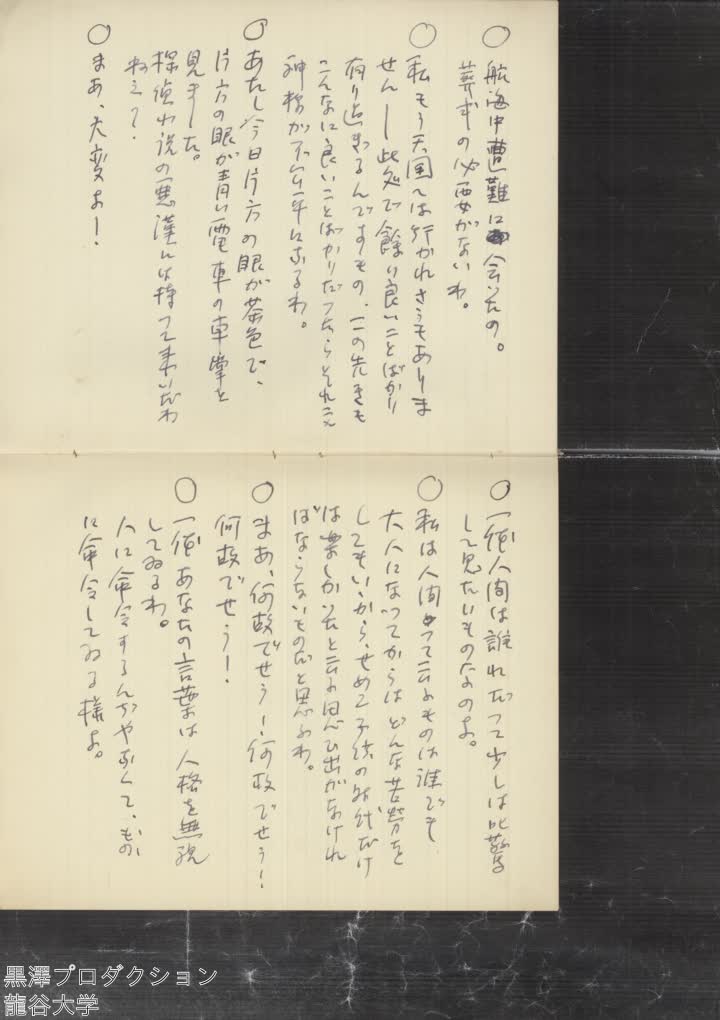 ○ 航海中遭難に会つたの。
葬式の必要がないわ。
○ 私もう天国へは行かれさうもありま
せん——此処で余り良いことばかり
有り過ぎるんですもの、この先きも
こんなに良いことばかりだつたらそれこそ
神様が不公平になるわ。
○ あたし今日片方の眼が茶色で、
片方の眼が青い電車の車掌を
見ました。
探偵小説の悪漢には持つて来いだわ
ねえ?
○ まあ、大変よー!
○ 一体人間は誰れだつて少しは吃驚
して見たいものなのよ。
○ 私は人間つて云ふものは誰でも
大人になつてからはどんな苦労を
してもいゝから、せめて子供の時代だけ
は楽しかつたと云ふ思ひ出がなけれ
ばならないものだと思ふわ。
○ まあ、何故でせう! 何故でせう!
何故でせう!
○ 一体あなたの言葉は人格を無視
してゐるわ。
人に命令するんぢやなくて、もの
に命令してゐる様よ。
黒澤プロダクション
龍谷大学